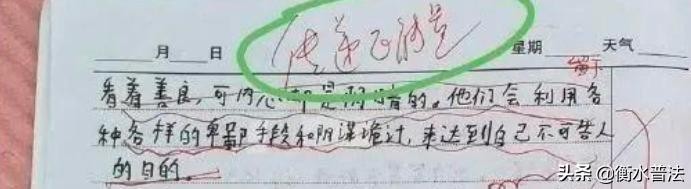 传递正能量
月 日 星期 天气
看着善良,可内心却是阴暗的。他们会利用各
种各样的卑鄙手段和阴谋诡计,来达到自己不可告人
的目的。
头条@衡水普法